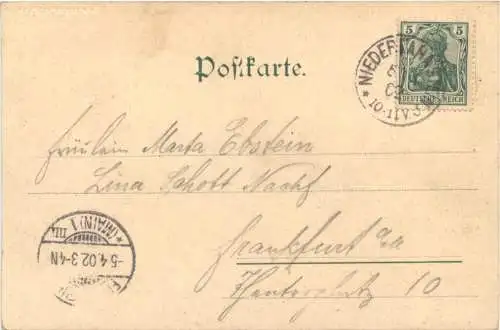 Postkarte.
5
DEUTSCHES REICH
10-11V
Fräulein Marta Ebstein
Lina Schott Nachf
Frankfurt a/M
10
(MAIN) 1
5.4.02 3-4N